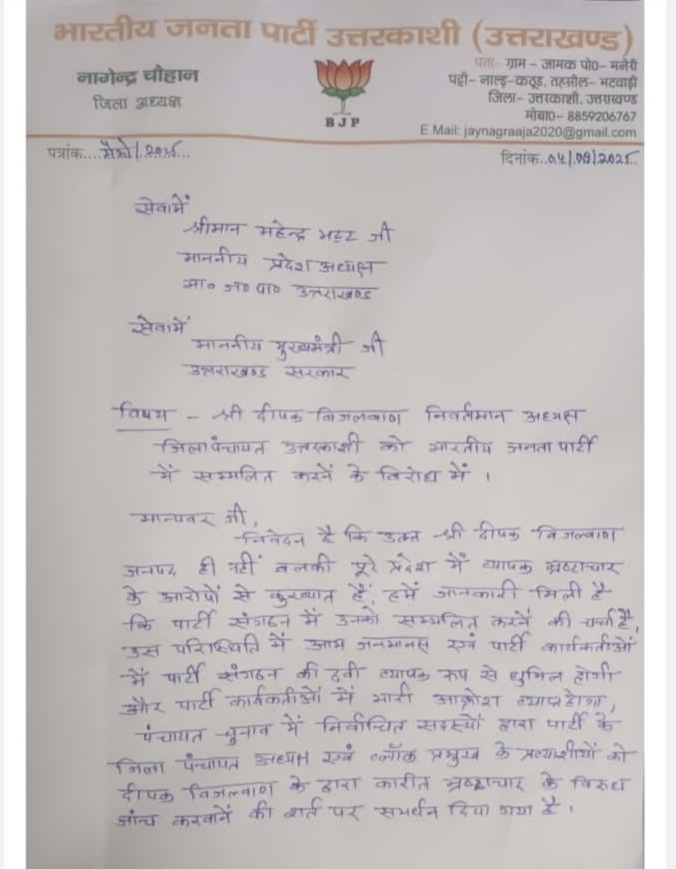 भारतीय जनता पार्टी उत्तरकाशी (उत्तराखण्ड)
नागेन्द्र चौहान
जिला अध्यक्ष
BJP
पता- ग्राम - जामक पो0- मनेरी
पट्टी- नाल्ड-कठूड, तहसील- भटवाड़ी
जिला- उत्तरकाशी, उत्तराखण्ड
मोबा0- 8859206767
E Mail: jaynagraaja2020@gmail.com
पत्रांक.... मैमो/2025...
दिनांक..04/09/2025..
सेवामें
श्रीमान महेन्द्र भट्ट जी
माननीय प्रदेश अध्यक्ष
भा० ज० पा० उत्तराखण्ड
सेवामें
माननीय मुख्यमंत्री जी
उत्तराखण्ड सरकार
विषय - श्री दीपक बिजलवाण निवर्तमान अध्यक्ष
जिला पंचायत उत्तरकाशी को भारतीय जनता पार्टी
में सम्मलित करनें के विरोध में ।
मान्यवर जी,
निवेदन है कि उक्त श्री दीपक बिजलवाण
जनपद ही नहीं बलकी पूरे प्रदेश में व्यापक भ्रष्टाचार
के आरोपों से कुख्यात हैं, हमें जानकारी मिली है
कि पार्टी संगठन में उनको सम्मलित करनें की चर्चा है,
उस परिस्थिति में आम जनमानस एवं पार्टी कार्यकर्ताओं
में पार्टी संगठन की छवी व्यापक रूप से धुमिल होगी
और पार्टी कार्यकर्ताओं में भारी आक्रोश व्याप्त होगा,
पंचायत चुनाव में निर्वाचित सदस्यों द्वारा पार्टी के
जिला पंचायत अध्यक्ष एवं ब्लॉक प्रमुख के प्रत्याशीयों को
दीपक बिजलवाण के द्वारा कारीत भ्रष्टाचार के विरुध
जांच करवानें की शर्त पर समर्थन दिया गया है ।